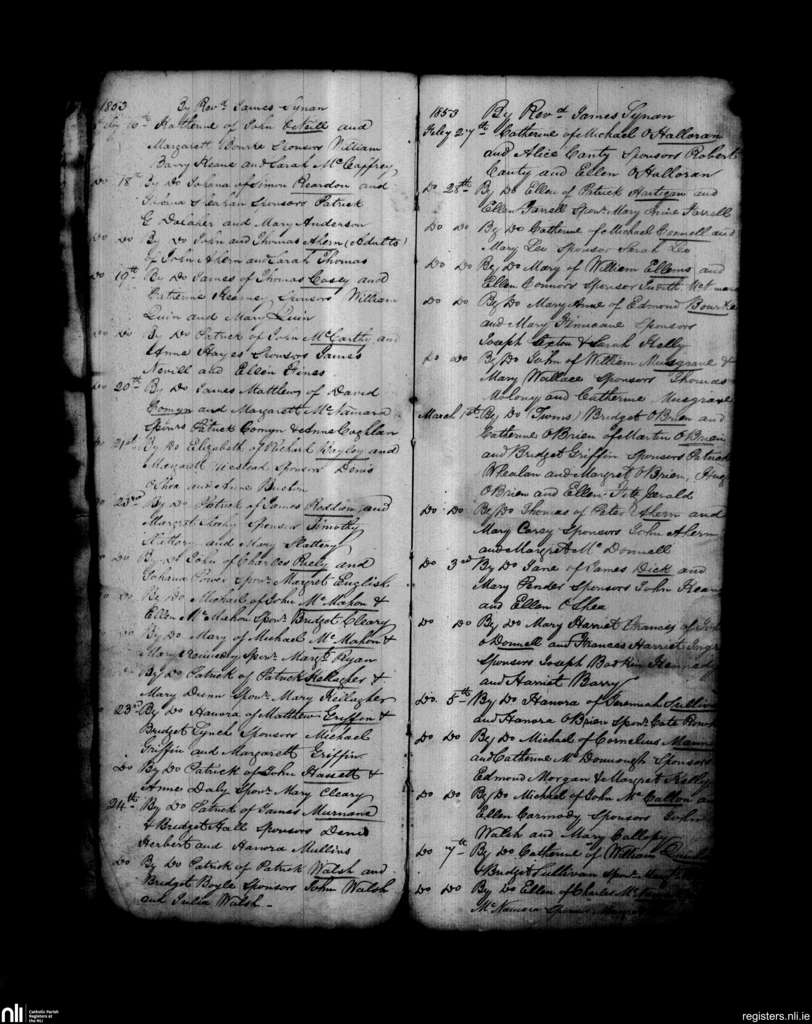 1853 By Revd. James Synan
Feby 16th Katherine of John O'Neill and
Margarett Bourke Sponsors William
Barry Keane and Sarah McCaffrey
Do 18th By Do Johana of Simon Reardon and
Sponsors Patrick
and Mary Anderson
Do Do By Do John and Thomas Ahern (Adults)
of John Ahern and Sarah Thomas
Do 19th By Do James of Thomas Casey and
Catherine Sponsors William
Quin and Mary Quin
Do Do By Do Patrick of John McCarthy and
Anne Hayes Sponsors James
Nevill and Ellen Hines
Do 20th By Do James Matthew of David
Comyn and Margarett McNamara
Sponsors Patrick Comyn & Anne Coghlan
Do 21st By Do Elizabeth of Richard Bayley and
Margarett Sponsors Denis
O'Shea and Anne
Do 23rd By Do Patrick of James Reddan and
Margret Sponsor Timothy
Slattery and Mary Slattery
Do Do By Do John of Charles Riely and
Johana Power Sponr. Margret English
Do By Do Michael of John McMahon &
Ellen McMahon Sponr. Bridget Cleary
Do By Do Mary of Michael McMahon &
Mary Kennedy Sponr. Margt. Ryan
By Do Patrick of Patrick Kellagher &
Mary Dunn Sponr. Mary Kellagher
Do 23rd By Do Hanora of Matthew Griffin &
Bridget Lynch Sponsors Michael
Griffin and Margarett Griffin
Do By Do Patrick of John Hassett &
Anne Daly Sponr. Mary Cleary
24th By Do Patrick of James Murnane
& Bridget Hall Sponsors Denis
Herbert and Hanora Mullins
Do By Do Patrick of Patrick Walsh and
Bridget Boyle Sponsors John Walsh
and Julia Walsh -
1853 By Revd James Synan
Feby 27th Catherine of Michael O'Halloran
and Alice Canty Sponsors Robert
Canty and Ellen O'Halloran
Do 28th By Do Ellen of Patrick Hartigan and
Ellen Farrell Sponr. Mary Farrell
Do Do By Do Catherine of Michael and
Mary Leo Sponsor Sarah Leo
Do Do By Do Mary of William Ellems and
Ellen Connors Sponsor Judith
Do Do By Do Mary Anne of Edmond Bourke
and Mary Finucane Sponsors
Joseph Sexton & Sarah Kelly
Do Do By Do John of William Musgrave &
Mary Wallace Sponsors Thomas
Molony and Catherine Musgrave
March 1st By Do (Twins) Bridget O'Brien and
Catherine O'Brien of Martin O'Brien
and Bridget Griffin Sponsors Patrick
Whealan and Margret O'Brien, Hugh
O'Brien and Ellen Fitz Gerald
Do Do By Do Thomas of Peter Ahern and
Mary Carey Sponsors John Ahern
and Margret McDonnell
Do 3rd By Do Jane of James Dick and
Mary Pender Sponsors John
and Ellen O'Shea
Do Do By Do Mary Harriet Frances of
O'Donnell and Frances Harriet
Sponsors Joseph Kennedy
and Harriet Barry
Do 5th By Do Hanora of Jeremiah Sullivan
and Hanora O'Brien Sponr. Cate
Do Do By Do Michael of Cornelius
and Catherine McDonnough Sponsors
Edmond Morgan & Margret Kelly
Do Do By Do Michael of John McCallon and
Ellen Carmody Sponsors John
Walsh and Mary Gallopy
Do 7th By Do Catherine of William
& Bridget Sullivan Sponr.
Do Do By Do Ellen of Charles
McNamara Sponsr.
nli Catholic Parish
Registers at
the NLI
registers.nli.ie